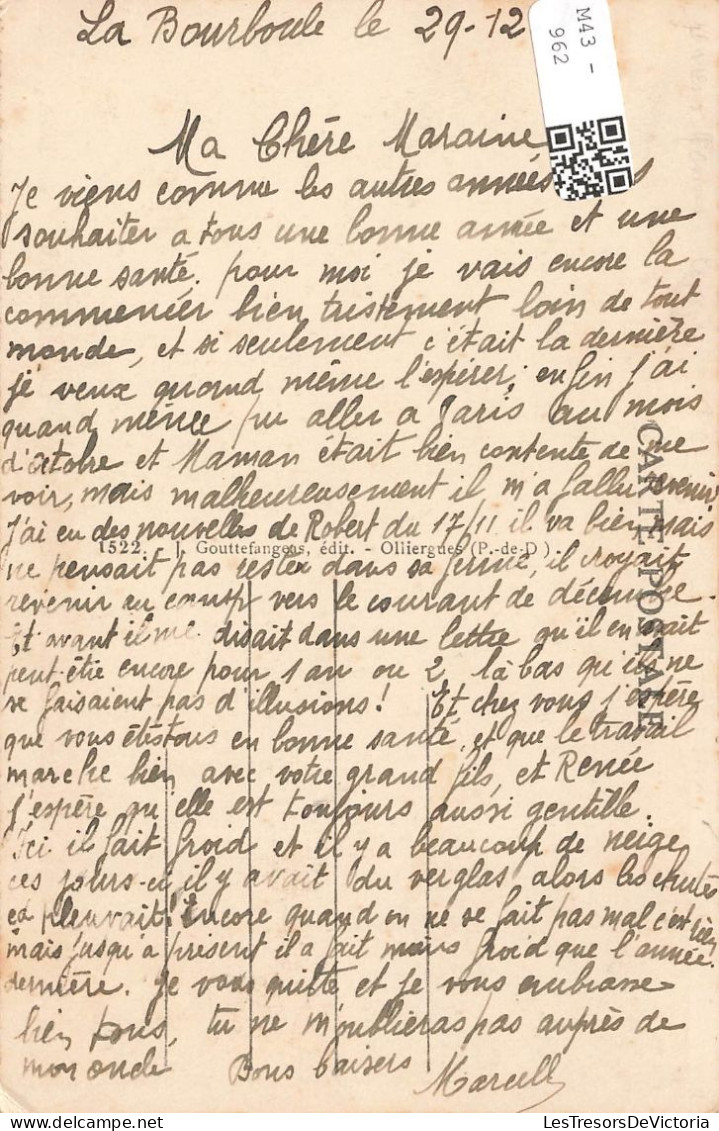 La Bourboule le 29-12
M43 - 962
Ma Chère Maraine
Je viens comme les autres années
souhaiter a tous une bonne année et une
bonne santé. pour moi je vais encore la
commencér bien tristement loin de tout
monde, et si seulement c'était la dernière
je veux quand même l'espérer; enfin j'ai
quand même pu aller a Paris au mois
d'octobre et Maman était bien contente de me
voir, mais malheureusement il m'a fallu revenir
J'ai eu des nouvelles de Robert du 17/11 il va bien mais
1522. J. Gouttefangeas, édit. - Olliergues (P.-de-D.)
CARTE POSTALE
ne pensait pas rester dans sa ferme, il croyait
revenir au camp vers le courant de décembre.
Et avant il me disait dans une lettre qu'il en avait
peut-être encore pour 1 an ou 2 là bas qu'ils ne
se faisaient pas d'illusions! Et chez vous j'espère
que vous êtes tous en bonne santé, et que le travail
marche bien avec votre grand fils, et Renée
j'espère qu'elle est toujours aussi gentille.
Ici il fait froid et il y a beaucoup de neige
ces jours-ci il y avait du verglas alors les chutes
pleuvait! Encore quand on ne se fait pas mal c'est rien
mais jusqu'a présent il a fait moins froid que l'année
dernière. Je vous quitte et je vous embrasse
bien tous, tu ne m'oublieras pas auprès de
mon oncle Bons baisers
Marcell
LesTresorsDeVictoria